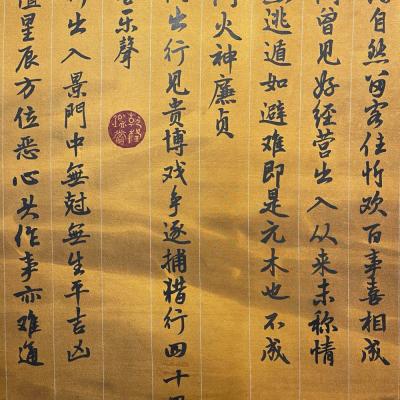 自然留客住忻欢百事喜相成
曾见好经营出入从来未称情
逃遁如避难即是元木也不成
火神廉贞
出行见贵博戏争逐捕猎行四十
乐聲
出入景門中無尅無生平吉凶
星辰方位恶心头作事亦难通